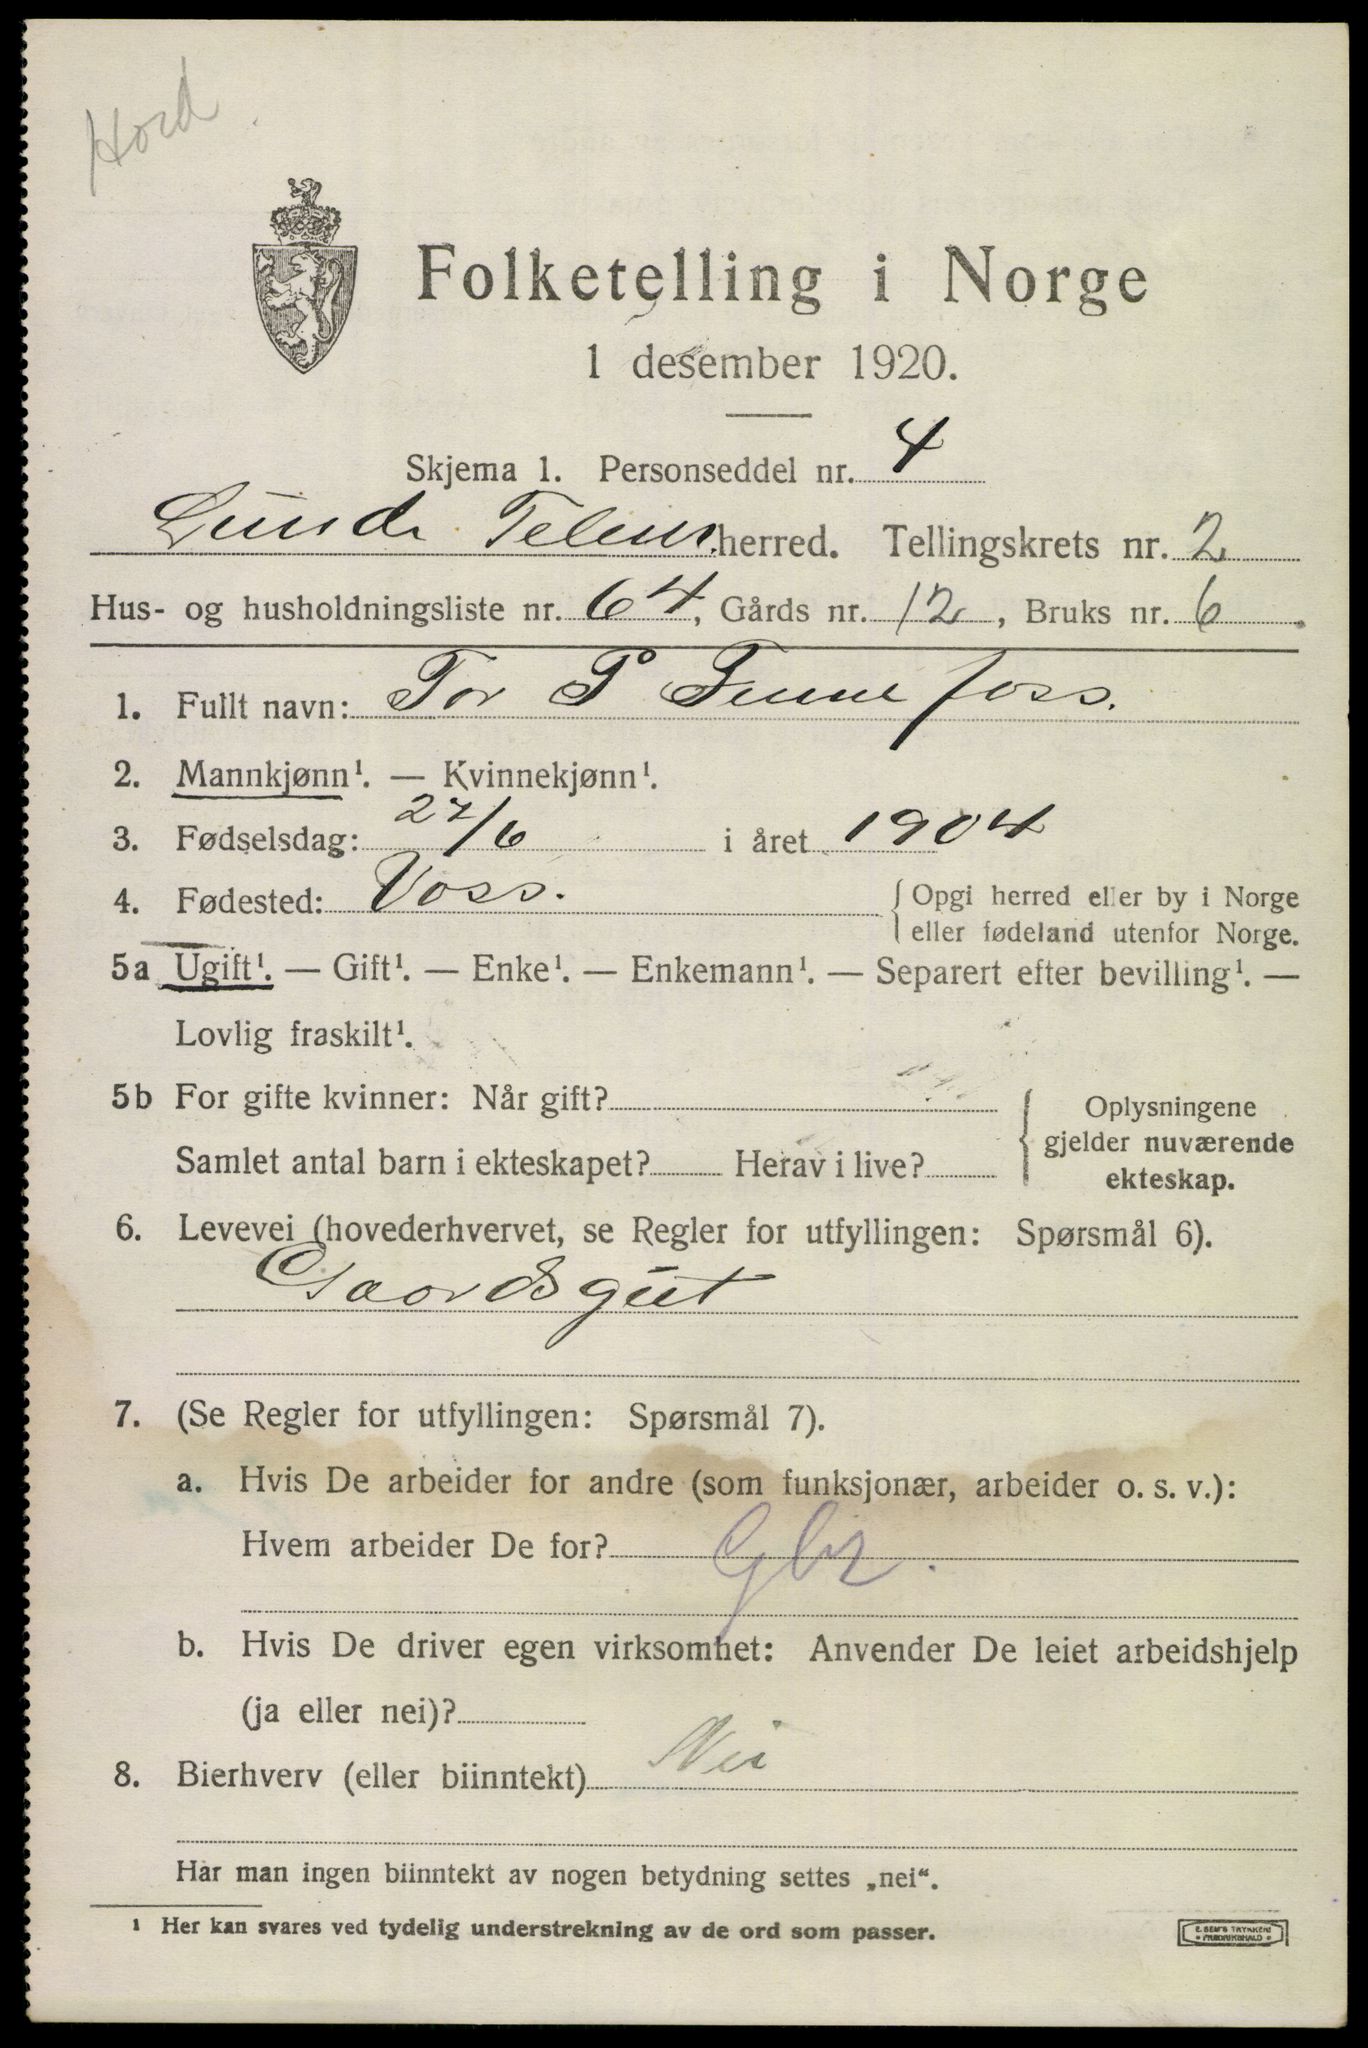 Hord
Folketelling i Norge
1 desember 1920.
Skjema 1. Personseddel nr. 4
Lunde Telem. herred. Tellingskrets nr. 2
Hus- og husholdningsliste nr. 64, Gårds nr. 12, Bruks nr. 6.
1. Fullt navn: Tor P Finnefoss.
2. Mannkjønn¹. — Kvinnekjønn¹.
3. Fødselsdag: 27/6 i året 1904
4. Fødested: Voss. { Opgi herred eller by i Norge
eller fødeland utenfor Norge.
5a Ugift¹. — Gift¹. — Enke¹. — Enkemann¹. — Separert efter bevilling¹. —
Lovlig fraskilt¹.
5b For gifte kvinner: Når gift?
Samlet antal barn i ekteskapet? Herav i live?
Oplysningene
gjelder nuværende
ekteskap.
6. Levevei (hovederhvervet, se Regler for utfyllingen: Spørsmål 6).
Gaardsgut
7. (Se Regler for utfyllingen: Spørsmål 7).
a. Hvis De arbeider for andre (som funksjonær, arbeider o. s. v.):
Hvem arbeider De for? Gbr.
b. Hvis De driver egen virksomhet: Anvender De leiet arbeidshjelp
(ja eller nei)?
8. Bierhverv (eller biinntekt) Nei
Har man ingen biinntekt av nogen betydning settes „nei“.
¹ Her kan svares ved tydelig understrekning av de ord som passer.
E. SEM'S TRYKKERI
FREDRIKSHALD